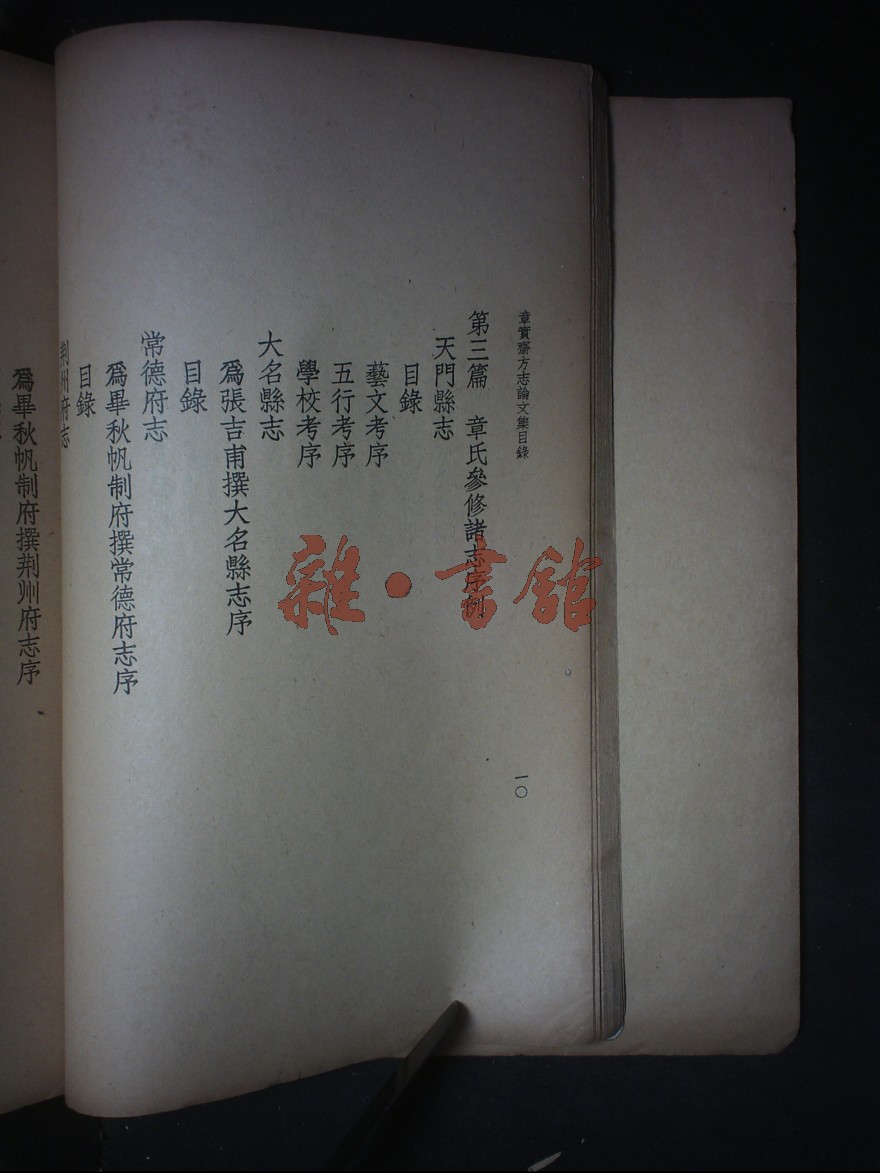 章實齋方志論文集目錄
一〇
第三篇　章氏參修諸志序例
天門縣志
目錄
藝文考序
五行考序
學校考序
大名縣志
爲張吉甫撰大名縣志序
目錄
常德府志
爲畢秋帆制府撰常德府志序
目錄
荆州府志
爲畢秋帆制府撰荆州府志序
雜·書館